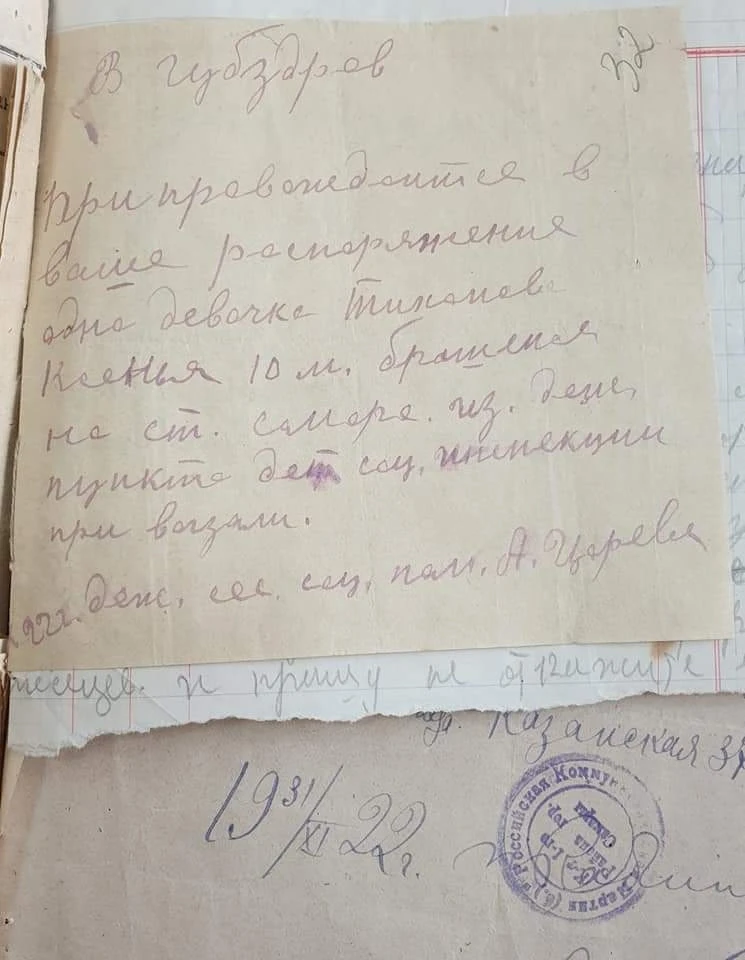 В губздров
32
При провождается в
ваше распоряжение
одна девочка Тихонова
Ксенья 10 м. брошеная
на ст. самара. из. деж.
пункта дет соц. инспекции
при вогзали.
22г. деж. сес. соц. пом. А. Царева
месяцев. и прошу не откажите
Казанская 37
19 31/XI 22г.
Российская Коммун
Партия (б.)